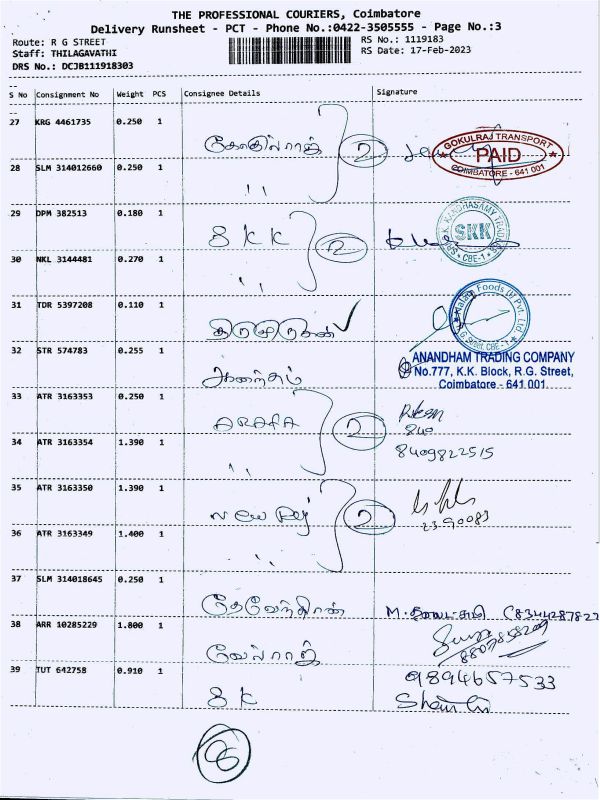 THE PROFESSIONAL COURIERS, Coimbatore
Delivery Runsheet - PCT - Phone No.:0422-3505555 - Page No.:3
Route: R G STREET
RS No.: 1119183
Staff: THILAGAVATHI
RS Date: 17-Feb-2023
DRS No.: DCJB111918303
S No Consignment No Weight PCS Consignee Details Signature
27 KRG 4461735 0.250 1
கோகுல்ராஜ் 2
GOKULRAJ TRANSPORT
PAID
COIMBATORE - 641 001
28 SLM 314012660 0.250 1
,,
29 DPM 382513 0.180 1
S K K 2
SKK
CBE-1
30 NKL 3144481 0.270 1
,,
31 TDR 5397208 0.110 1
Foods (I) Pvt. Ltd.
32 STR 574783 0.255 1
ஆனந்தம்
ANANDHAM TRADING COMPANY
No.777, K.K. Block, R.G. Street,
Coimbatore - 641 001
33 ATR 3163353 0.250 1
2
840
8409822515
34 ATR 3163354 1.390 1
,,
35 ATR 3163350 1.390 1
2
2390083
36 ATR 3163349 1.400 1
,,
37 SLM 314018645 0.250 1
38 ARR 10285229 1.800 1
வேல்ராஜ்
39 TUT 642758 0.910 1
S K
9894657533